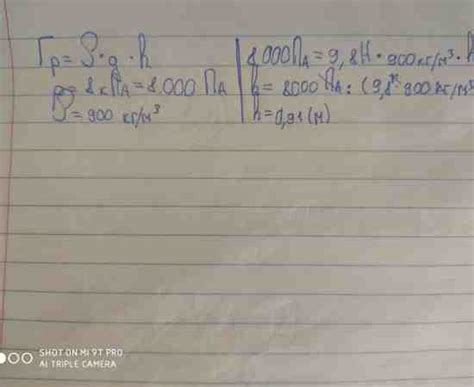 p = ρ · g · h
p = 8 кПа = 8000 Па
ρ = 900 кг/м³
8000Па = 9,8Н · 900 кг/м³ · h
h = 8000 Па : (9,8Н · 900 кг/м³
h = 0,91 (м)
SHOT ON MI 9T PRO
AI TRIPLE CAMERA